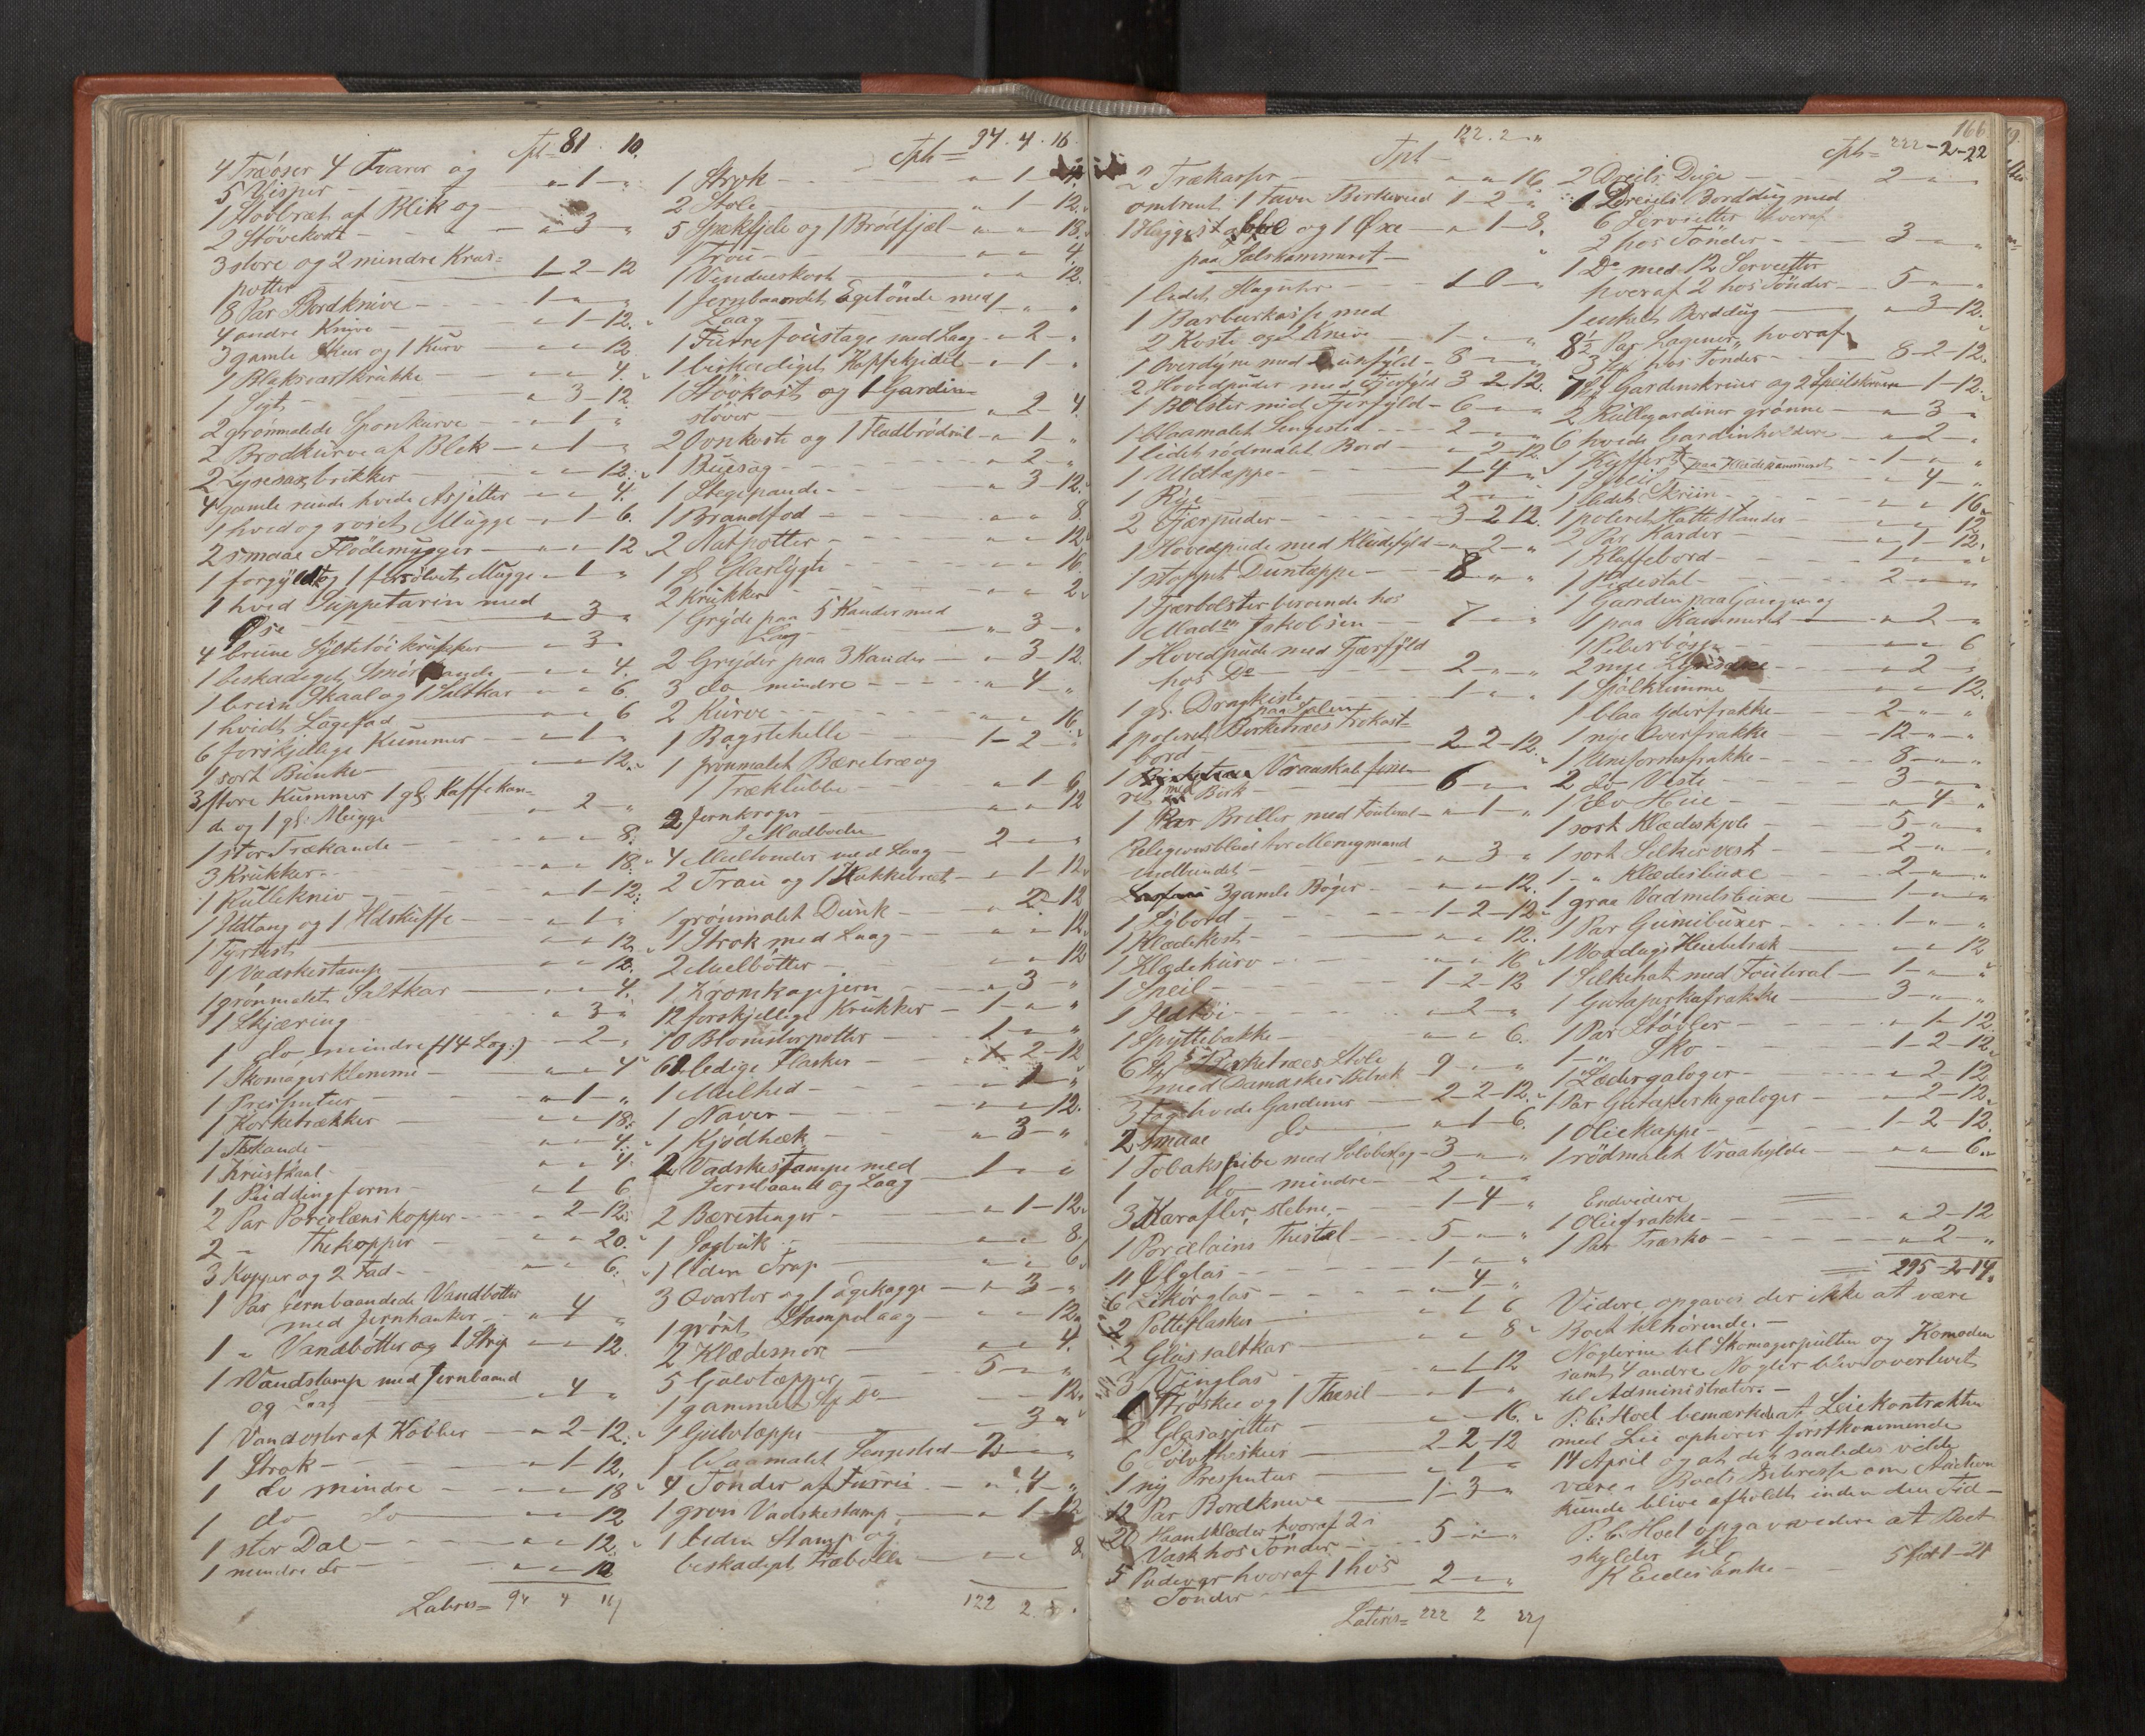 Tpt 81 " 10.
4 Træøser 4 Tvarer og
5 Visper - " 1 "
1 Støvbræt af Blik og
2 Støvekoste - " 3 "
3 store og 2 mindre Krus=
potter 1 2 12
8 Par Bordknive - 1 " "
4 andre Knive - " 1 12
3 gamle Skur og 1 Kurv " " 12
1 Blaksvartkrukke " " 4.
1 Sigt " 3 12
2 grønmalede Sponkurve - " 1 "
2 Brødkurve af Blek " 1 "
2 Lysesaxbrikker " " 12.
4 gamle runde hvide Asjetter " " 4.
1 hvid og roset Mugge " 1 6.
2 smaae Flødemugger " " 12
1 forgyldt og 1 forsølvet Mugge " 1 "
1 hvid Suppeterin med
Øse " 3 "
4 brune Syltetøikrukker " 3 "
1 beskadiget Smør " " 4.
1 brun Skaal og 1 Saltkar " " 6.
1 hvidt Lagefad " " 6
6 forskjellige Kummer " 1 "
1 sort Bunke " " 12.
3 store Kummer 1 gl. Kaffekan=
de og 1 gl. Mugge " 2 "
1 stor Trækande " " 8.
3 Krukker " " 18.
1 Rullekniv " 1 12.
1 Ildtang og 1 Ildskuffe " 1 "
1 Tyrihist " " 12
1 Vadskestamp " " 12.
1 grønmalet Saltkar " " 4.
1 Skjæring " 3 "
1 do mindre (14 Log:) " 2 "
1 Skomagerklemme " " 4
1 Presputur " 1 "
1 Korketrækker " " 18.
1 Thekande " " 4.
1 Krusskaal " " 4.
1 Puddingform " 1 6
2 Par Porcelænskopper " 2 12
2 " Thekopper " " 20.
3 Kopper og 2 Fad " " 6.
1 Par jernbaandede Vandbøtter
med Jernhanker " 4 "
1 " Vandbøtter og 1 Strip " " 12.
1 Vandstamp med Jernbaand
og Laag " 4 "
1 Vandøsker af Kobber " 2 12.
1 Strok " 1 12.
1 do mindre " " 18
1 do do " " 12
1 stor Dal " " 12.
1 mindre do " " 12
Lateris= 94 4 16
Tpt = 94 . 4 . 16
1 Strok " 1
2 Stole " 1 12.
5 Spækfjele og 1 Brødfjæl " " 18.
Trou " " 4.
1 Vindueskost " " 12.
1 Jernbaandet Egetønde med
Laag " "
1 Furrefoustage med Laag " 2 "
1 beskadiget Kaffekjedel " 1 "
1 Støvkost og 1 Gardin
støver " 2 4.
2 Ovnkoste og 1 Fladbrødrul " 1 "
1 Buesag " 2 "
1 Stegepande " 3 12.
1 Brandfod " " 8.
2 Natpotter " " 12
1 gl. Glaslygte " " 16.
2 Krukker " " 2
1 Gryde paa 5 Kander med
Lag " 3 "
2 Gryder paa 3 Kander " 3 12.
3 do mindre " 4 "
2 Kurve " " 16
1 Bagstehelle 1 2 "
1 grønmalet Bæretræ og
1 Træklubbe " 1 6
2 Jernkroger " " 12
I Madboden
4 Meeltønder med Laag 2 " "
2 Trau og 1 Hakkebræt " 1 12
1 grønmalet Dunk " 2 12
1 Strok med Laag " " 12.
2 Meelbøtter " " 12
1 Kromkagejern " 3 "
12 forskjellige Krukker 1 " "
10 Blomsterpotter 1 " "
60 ledige Flasker 2 12
1 Meelhid " 1 "
1 Naver " " 12.
1 Kjødhæk " 3 "
2 Vadskestampe med
Jernbaand og Laag 1 " "
2 Bærestenger " 1 12.
1 Sagbuk " " 8.
1 liden Trap " " 6.
3 Qvarter og 1 Ægekagge " 3 "
1 grønt Stampelaag " " 12.
2 Klædesnore " " 4.
5 Gulvtæpper 5 " "
1 gammelt Do " " 12.
1 Gulvtæppe " 3 "
1 blaamalet Sengested 2 " "
4 Tønder af Furrie " 4 "
1 grøn Vadskestamp " 1 12
1 liden Stamp og
beskadiget Træbøtte " " 8.
122 2 "
Tpt - 122 . 2 "
2 Trækarper " " 16
omtrent 1 Favn Birkeved 1 2 "
1 Huggestabbe og 1 Øxe " 1 8.
paa Salskammeret
1 lidet Slaguhr 10 " "
1 Barberkasse med
2 Koste og 2 Knive 1 " "
1 Overdyne med Dunfyld 8 " "
2 Hovedpuder med Fjerfyld 3 2 12.
1 Bolster med Fjerfyld 6 " "
1 blaamalet Sengested 2 " "
1 lidet rødmalet Bord " 2 12
1 Uldtæppe 1 4 "
1 Rye 2 " "
2 Fjærpuder 3 2 12.
1 Hovedpude med Kludefyld " 2 "
1 stoppet Duntæppe 8 " "
1 Fjærbolster beroende hos
Madm Jakobsen 7 " "
1 Hovedpude med Fjærfyld
hos Do 2 " "
1 gl. Dragkiste 1 " "
paa Salen
1 poleret Birketræes Frokost=
bord 2 2 12.
1 Vraaskab finer
ret med Birk 6 " "
1 Par Briller med Fouteral " 1 "
Religionsblad for Menigmand
indbundet " 3 "
3 gamle Bøger " " 12.
1 Sybord 1 2 12
1 Klædekost " " 12.
1 Klædekurv " " 16
1 Speil 1 2 12
1 Ildtøi " 2 "
1 Spyttebakke " " 6.
6 Stk Birketræes Stole
med Damaskes Betræk 9 " "
3 Fag hvide Gardiner 2 2 12.
2 smaae do " 1 6.
1 Tobakspibe med Sølvbeslag 3 " "
1 do mindre 2 " "
3 Karafler, slebne, 1 4 "
1 Porcelains Thestel 5 " "
11 Ølglas 1 " "
6 Likørglas " 4 "
2 Potteflasker " 1 6
2 Glassaltkar " " 8
3 Vinglas " 1 12
1 Strøskee og 1 Thesil " 1 "
2 Glasasjetter " " 16.
6 Sølvtheskeer 2 2 12
1 ny Presputur " 1 "
12 Par Bordknive 1 3 "
20 Haandklæder hvoraf 2 i
Vask hos Tønder 5 " "
5 Pudevar hvoraf 1 hos
Tønder 2 " "
Lateris= 222 2 22
166
Tpt= 222 - 2 - 22
2 Dreils Duge 2 " "
1 Dreils Borddug med
6 Servietter hvoraf
2 hos Tønder 3 " "
1 Do med 12 Servietter
hveraf 2 hos Tønder 5 " "
1 enkelt Borddug " 3 12.
8½ Par Lagener, hvoraf
3 Stk hos Tønder 8 2 12.
Gardinskruer og 2 Speilskruer 1 12.
2 Rullegardiner grønne " 3 "
6 hvide Gardinholdere " 2 "
1 Kuffert paa Klædekammeret 1 " "
1 Speil " 4 "
1 lidet Skriin " " 16
1 poleret Hattestander " " 12
2 Par Karder " 1 12.
1 Klaffebord 1 " "
1 Pidestal 2 " "
1 Gardin paa Gangen og
1 paa Kammeret " 2 "
1 Peberbøsse " " 6
2 nye " 2 "
1 Spølkumme " " 12.
1 blaa Yderfrakke 2 " "
1 nye Overfrakke 12 " "
1 Uniformsfrakke 8 " "
2 do Veste 3 " "
1 do Hue " 4 "
1 sort Klædeskjole 5 " "
1 sort Silkevest 2 " "
1 " Klædesbuxe 2 " "
1 graa Vadmelsbuxe 1 " "
1 Par Gumibuxer 1 " "
1 Voxdugs Huebetræk " " 12
1 Silkehat med Fouteral 1 " "
1 Gutaperkafrakke 3 " "
1 Par Støvler " 1 12.
1 " Sko 1 2 12.
1 Lædergaloger " 2 12
1 Par Gutaperkegaloger " 2 12
1 Oliekappe 1 2 12.
1 rødmalet Vraahylde " " 6
Endvidere
1 Oliefrakke " 2 12
1 Par Træsko " 2 "
295 - 2 - 14.
Videre opgaves der ikke at være
Boet tilhørende.
Nøglerne til Skomagerpulten og Komoden
samt 4 andre Nøgler blev overleveret
til Administrator.
P: C: Hoel bemærkede at Leiekontrakten
med Lie ophører førstkommende
14 April og at det saaledes vilde
være i Boets Interesse om Auction
kunde blive afholdt inden den Tid
P: C: Hoel opgav videre at Boet
skylder til
K Eides Enke 5 Spd 1 21